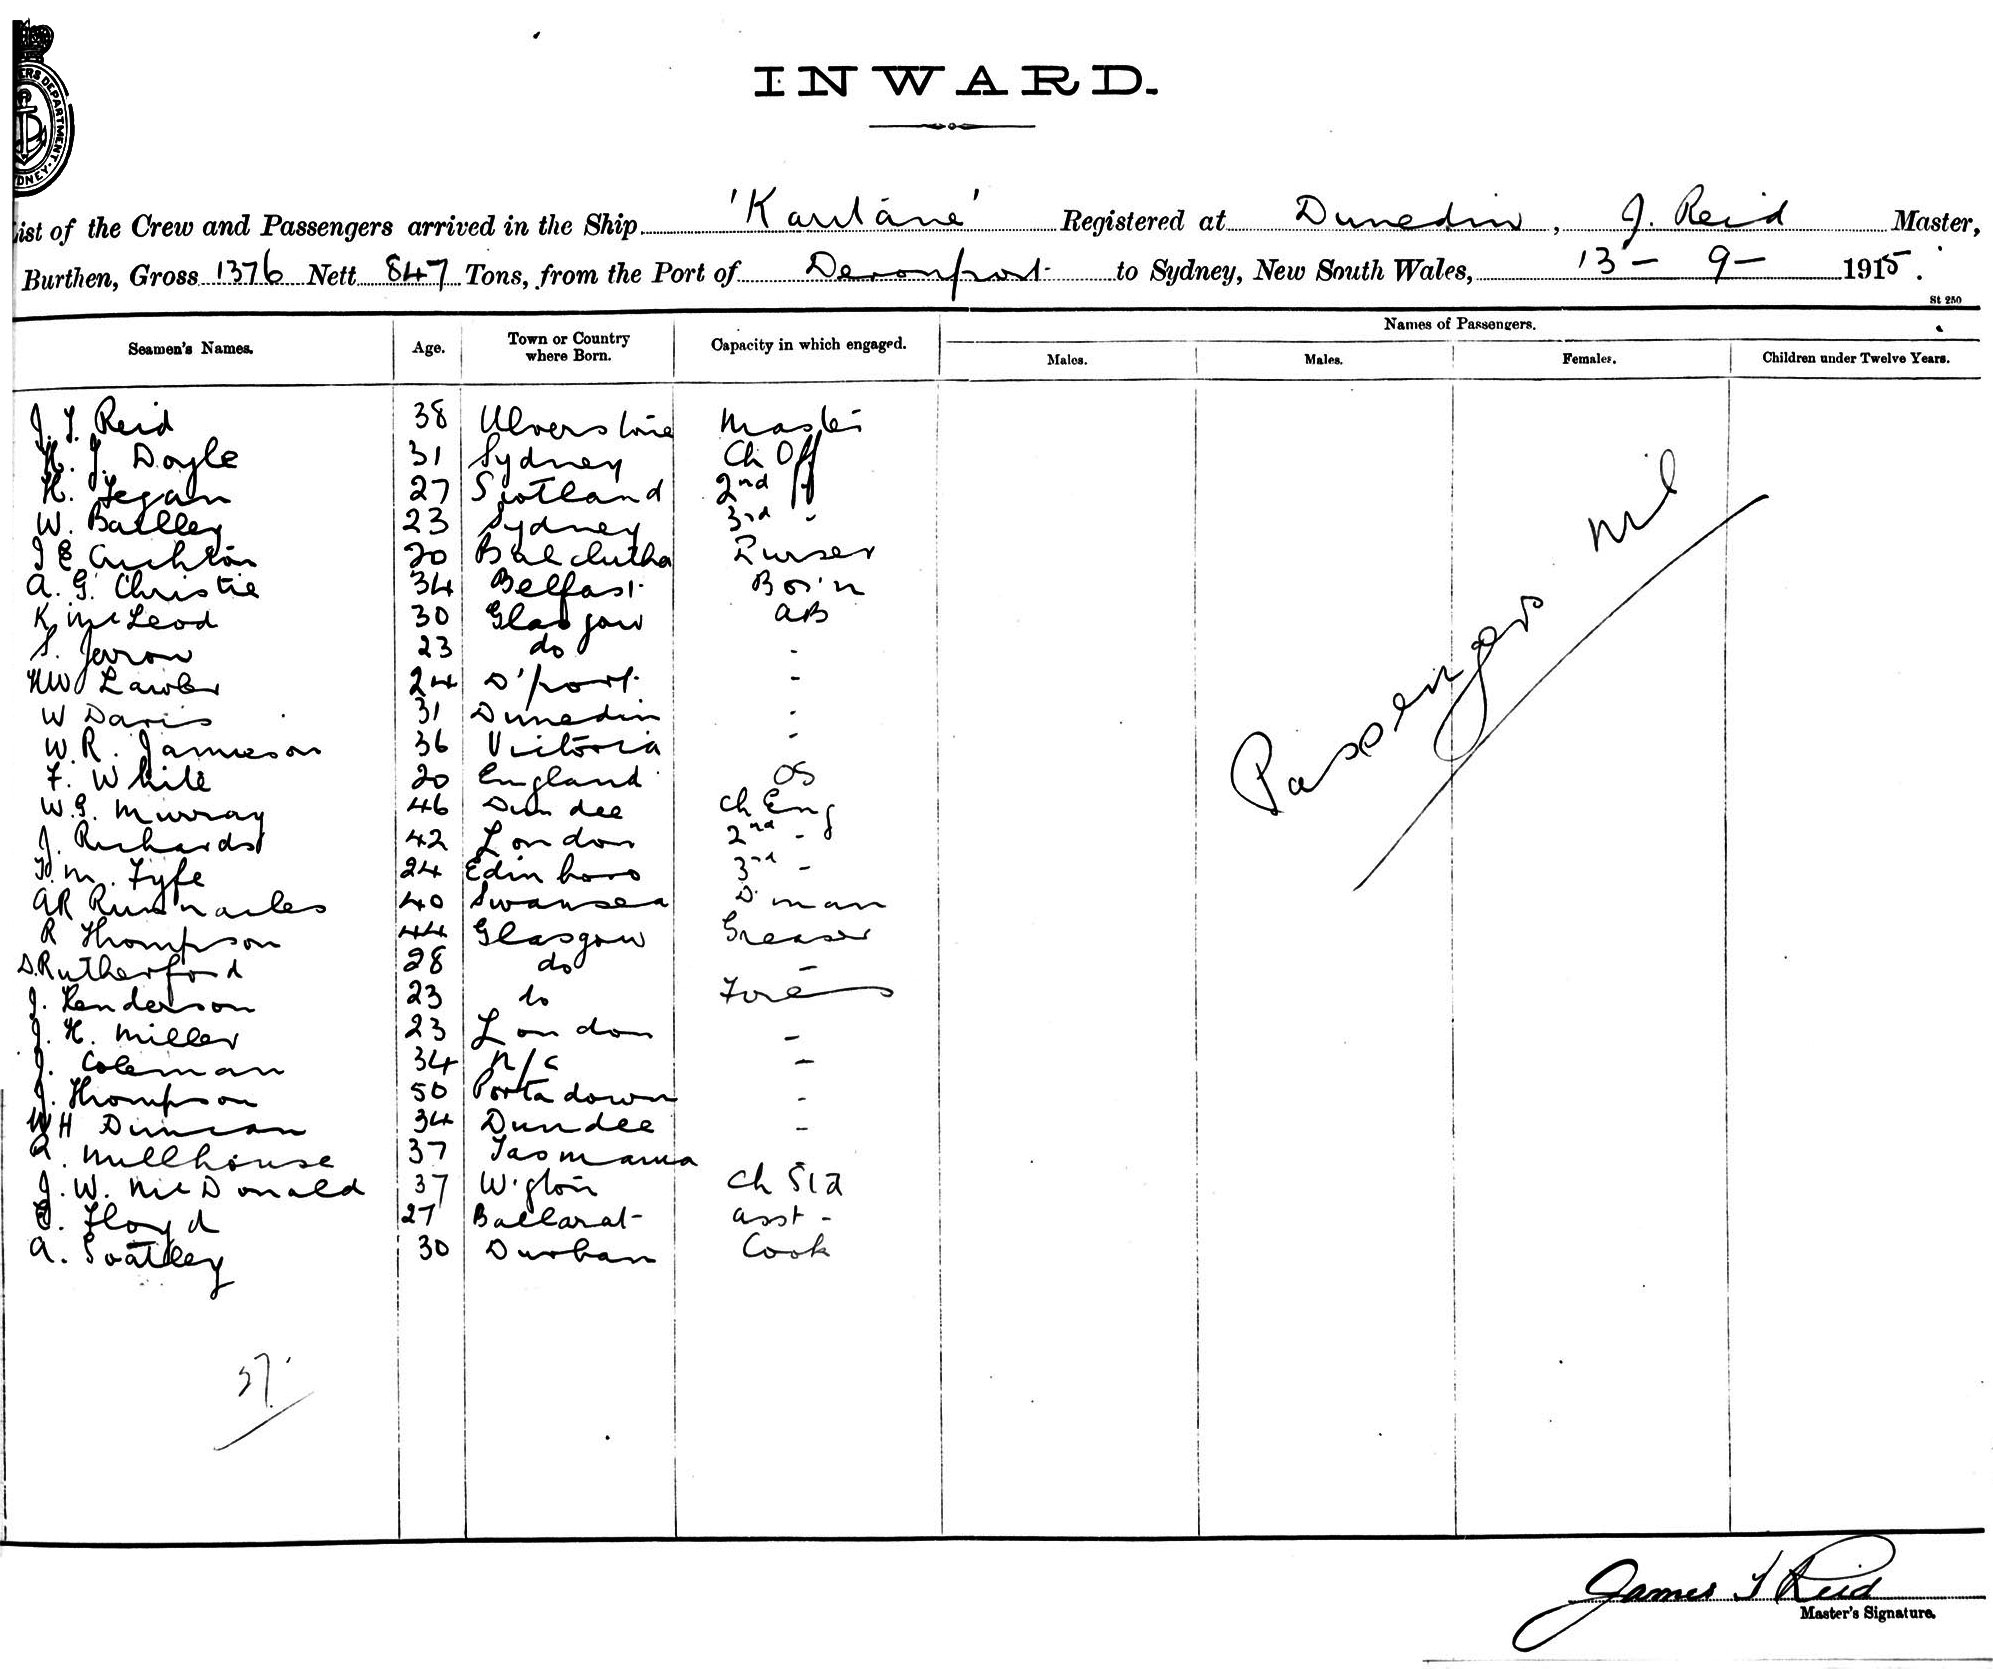 INWARD.
List of the Crew and Passengers arrived in the Ship 'Karitane' Registered at Dunedin, J. Reid Master,
Burthen, Gross 1376 Nett 847 Tons, from the Port of Devonport to Sydney, New South Wales, 13 - 9 - 1915.
St 250
Seamen's Names. Age. Town or Country where Born. Capacity in which engaged. Names of Passengers.
Males. Males. Females. Children under Twelve Years.
J. Y. Reid 38 Ulverstone Master
H. J. Doyle 31 Sydney Ch Off
H. 27 Scotland 2nd ff
W. Bailley 23 Sydney 3rd -
20 Balclutha Purser
A. G. Christie 34 Belfast Bos'n
K McLeod 30 Glasgow AB
S. 23 do -
HW Lawler 24 D'port -
W Davis 31 Dunedin -
W. R. Jamieson 36 Victoria -
F. White 20 England OS
W. G. Murray 46 Dundee Ch Eng
J. Richards 42 London 2nd -
M. Fyfe 24 Edinboro 3rd -
AR 40 Swansea D'man
R Thompson 44 Glasgow Greaser
D. Rutherford 28 do -
J. Henderson 23 do
J. H. Miller 23 London -
J. Coleman 34 N/C -
J. Thompson 50 Portadown -
WH Duncan 34 Dundee -
R. Millhouse 37 Tasmania
J. W. McDonald 37 W'gton Ch Std
E. Floyd 27 Ballarat asst -
A. 30 Durban Cook
Passengers nil
27
James Y Reid
Master's Signature.